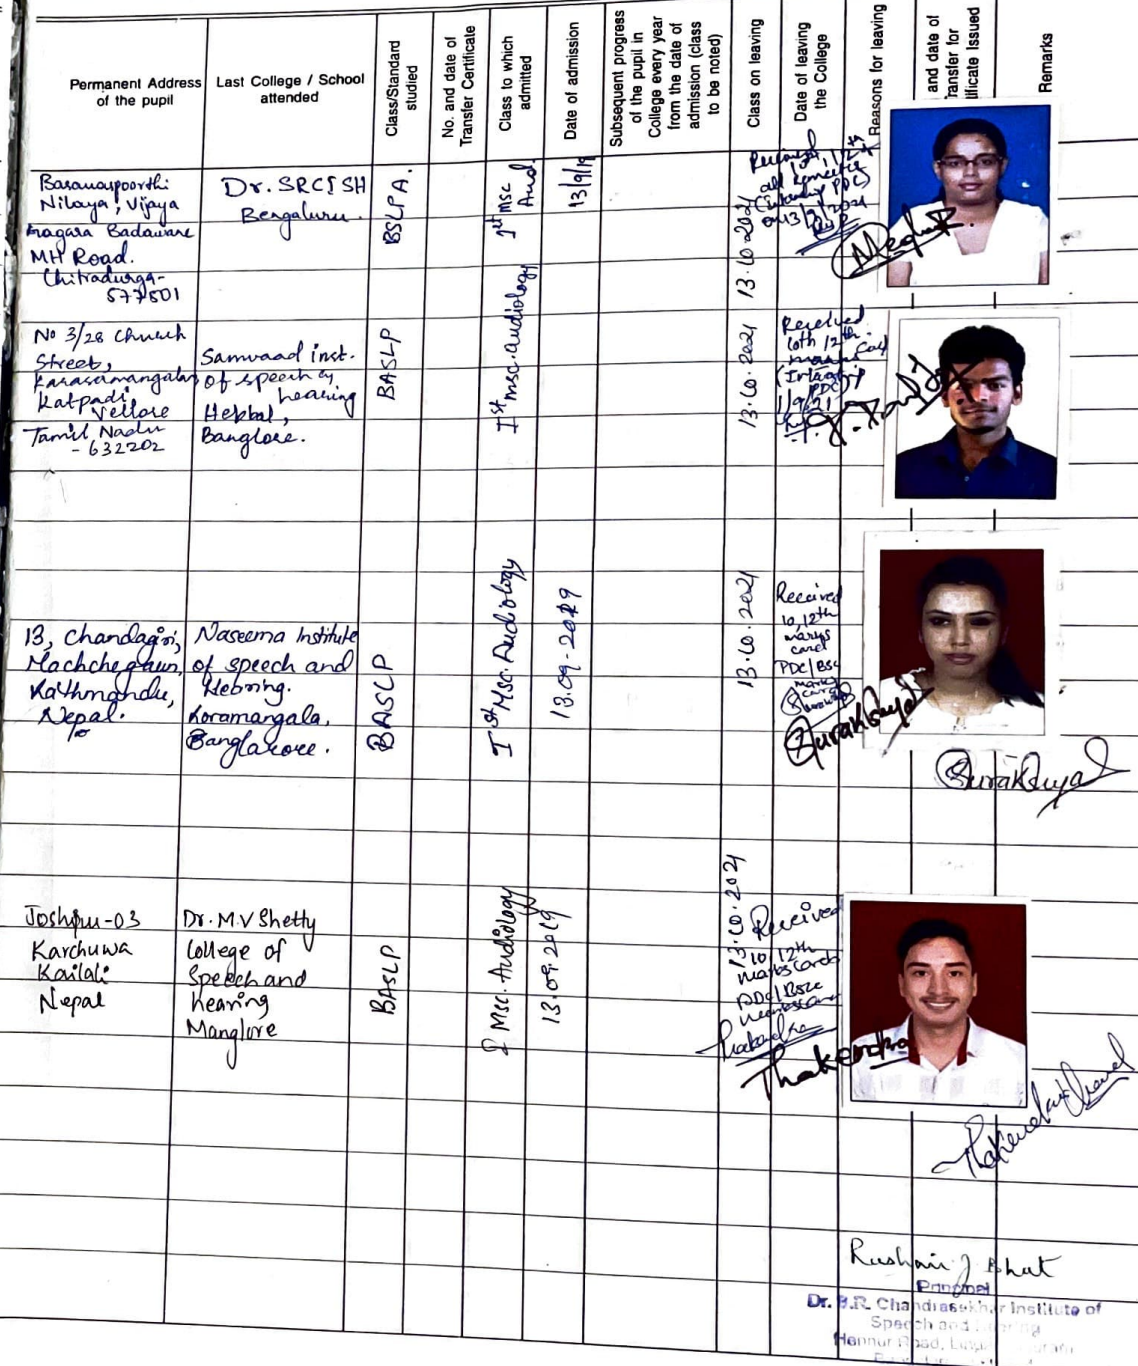 Permanent Address
of the pupil
Last College / School
attended
Class/Standard
studied
No. and date of
Transfer Certificate
Class to which
admitted
Date of admission
Subsequent progress
of the pupil in
College every year
from the date of
admission (class
to be noted)
Class on leaving
Date of leaving
the College
Reasons for leaving
and date of
Transfer for
ificate Issued
Remarks
Nilaya, Vijaya
nagara Badavane
MH Road.
Chitradurga-
577501
Dr. SRCISH
Bengaluru.
BSLPA.
Ist msc
Aud.
13/9/19
13.10.2021
No 3/28 Church
Street,
Katpadi,
Vellore
Tamil Nadu
- 632202
Samvaad inst.
of speech &
hearing
Hebbal,
Banglore.
BASLP
Ist msc.audiology
13.10.2021
Received
10th 12th
13, Chandagiri,
Machchegaun,
Kathmandu,
Nepal.
Naseema Institute
of speech and
Hebring.
Koramangala,
BASLP
Ist Msc. Audiology
13.09.2019
13.10.2021
Received
10, 12th
marks
card
PDC/BSc
marks
card
Joshipur-03
Karchuwa
Kailali
Nepal
Dr. M.V Shetty
College of
Speech and
hearing
Manglore
BASLP
I Msc. Audiology
13.09.2019
13.10.2021
Received
10, 12th
marks cards
PDC/BSc
markscard
Thakendra
Principal
Dr. B.R. Chandrasekhar Institute of
Speech and Hearing
Hennur Road,